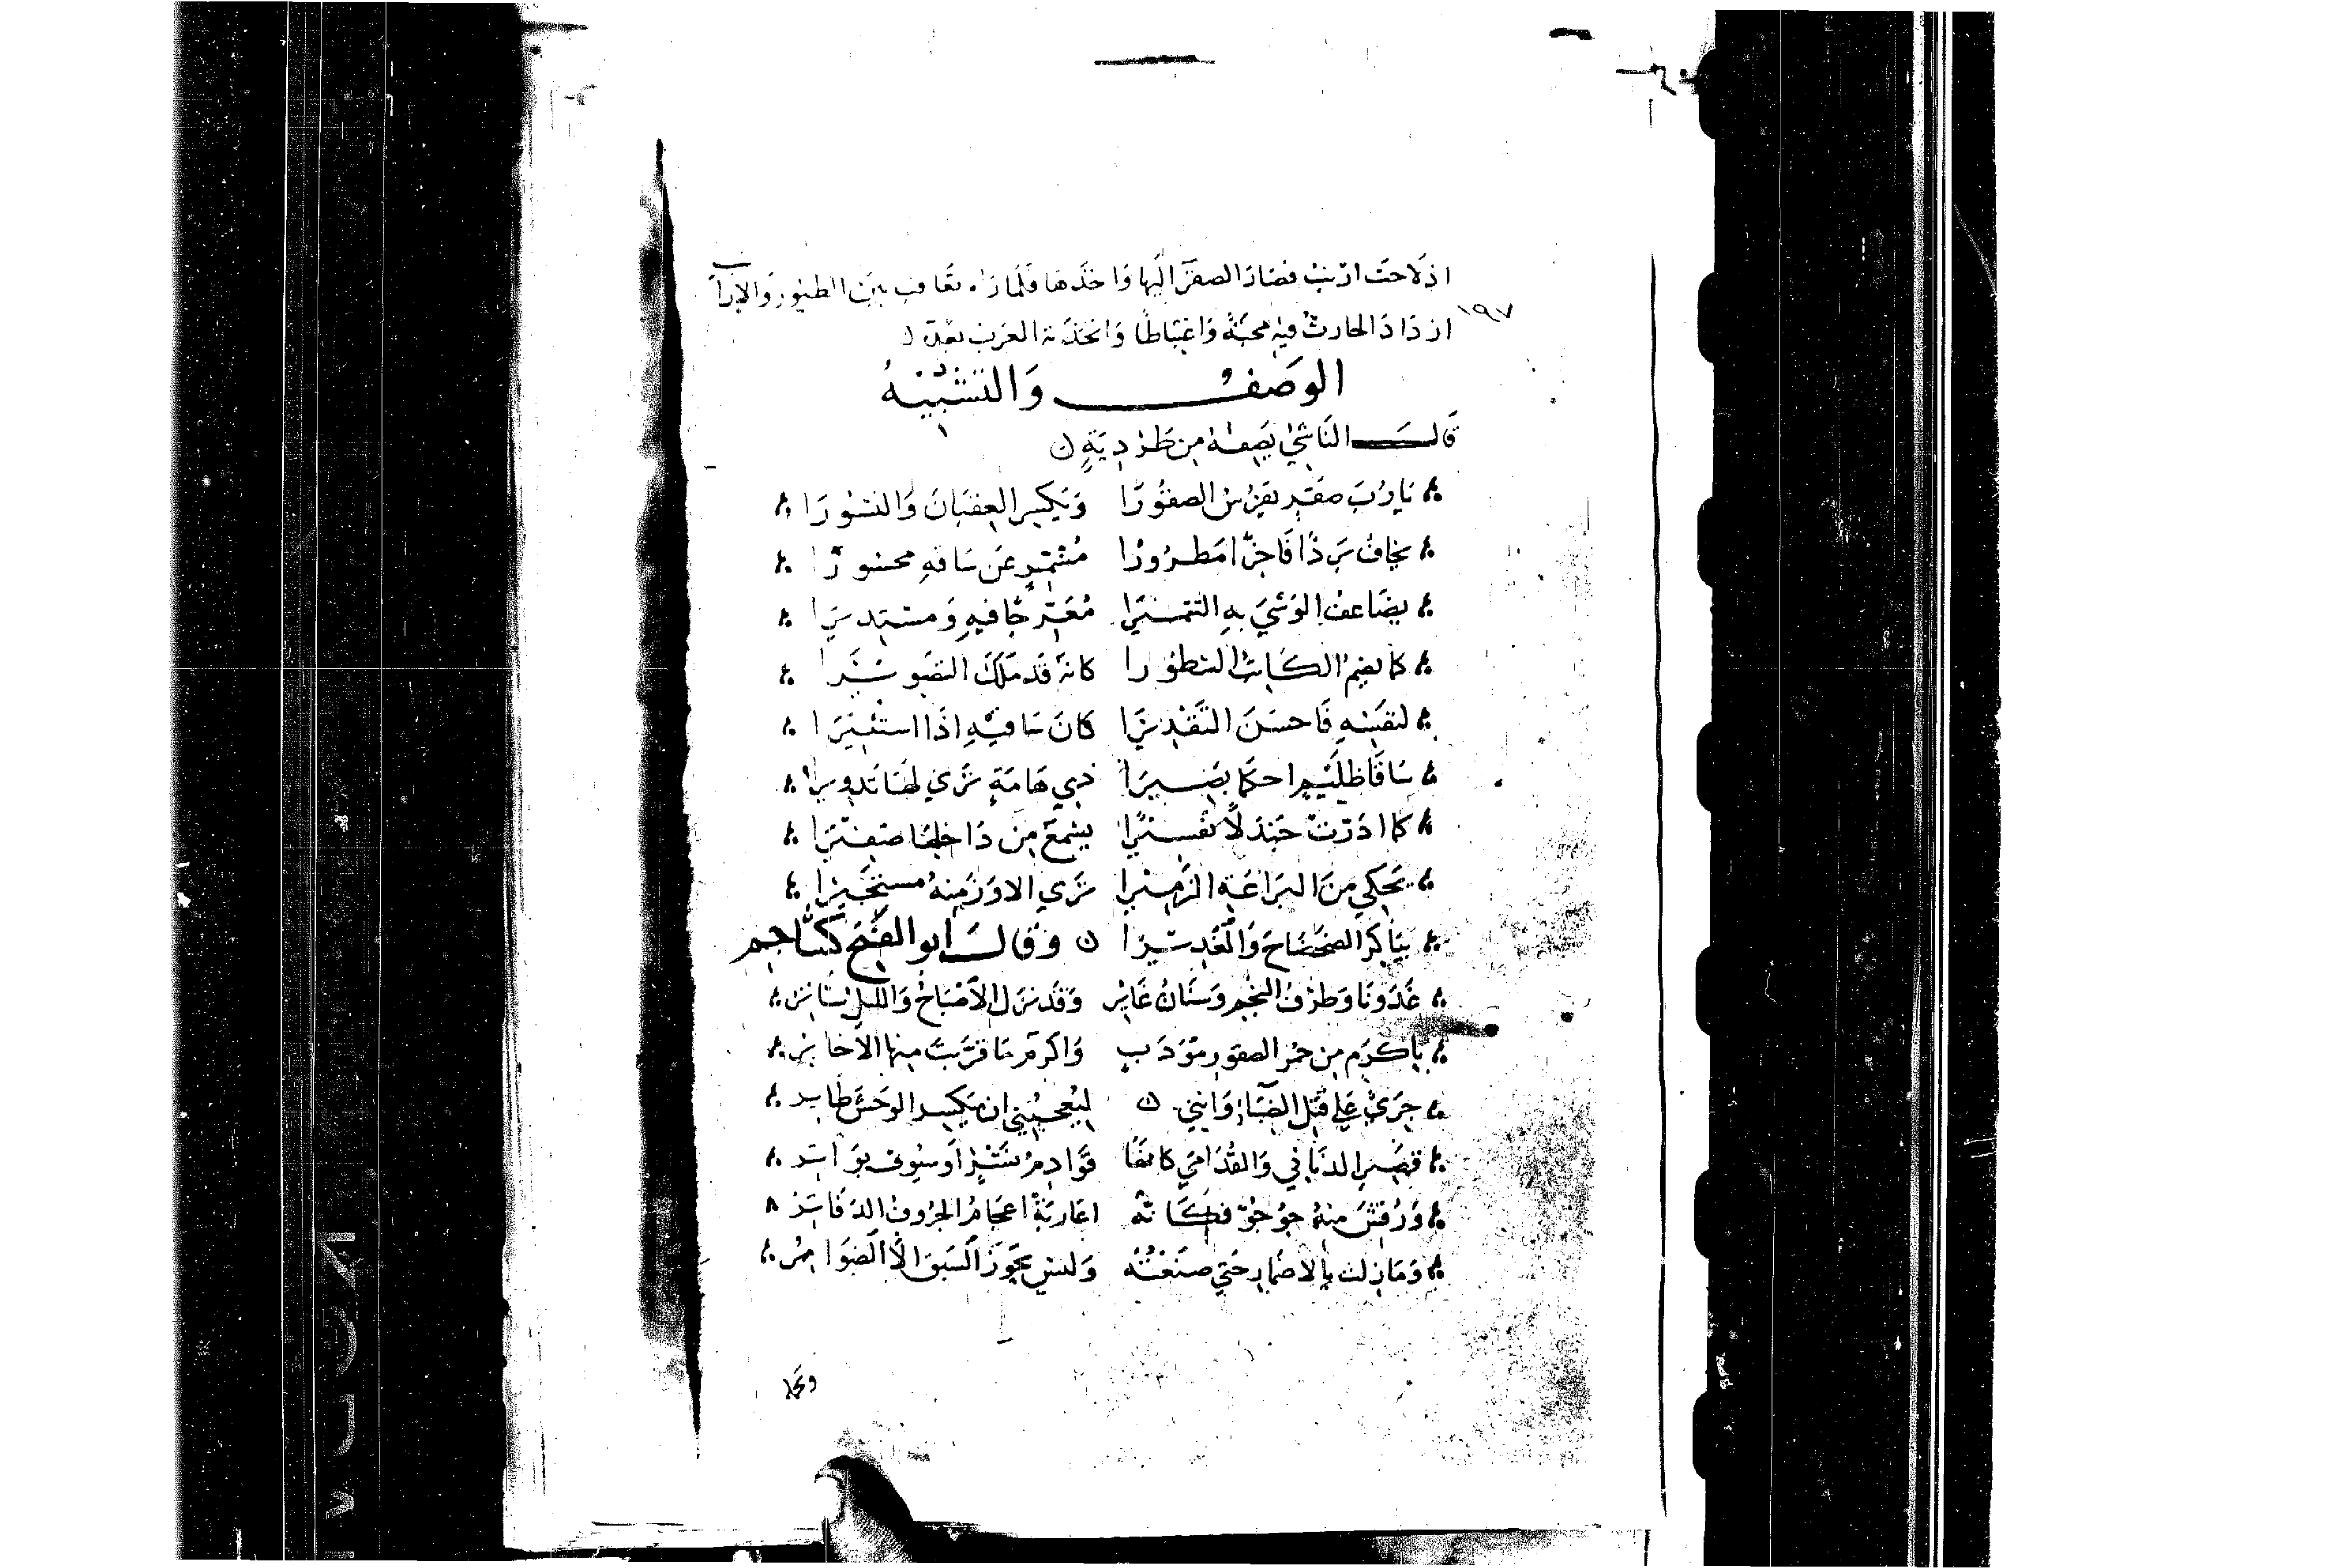 اذ لاحت ارنب فصار الصقر اليها واخذها فلما راه يعاقب بين الطيور والارانب
١٩٧
ازداد الحارث فيه محبة واغتباطا واتخذته العرب بعده
الوصف والتشبيه
قال الناشئ يصفه من طردية
يا رب صقر يفرس الصقورا ويكسر العقبان والنسورا
يجتاب برذا فاخرا مطرورا مشمر عن ساقه محسورا
يضاعف الوشي به التنميرا معرجا فيه ومستديرا
كما يضم الكاتب السطورا كانه قد ملك التصويرا
لنفسه فاحسن التقديرا كان ساقيه اذا استثيرا
ساقا ظليم احكما تضبيرا ذي هامة ترى لها تدويرا
كما ادرت جندلا نقيرا يسمع من داخلها صفيرا
يحكي من اليراعة الزميرا ترى الاوز منه مستجيرا
يباكر الضحضاح والغديرا وقال ابو الفتح كشاجم
غدونا وطرف النجم وسنان غابر وقد نزل الاصباح والليل سائر
باكرم من حمر الصقور مؤدب واكرم ما قربت منها الاحامر
جري على قتل الظباء وانني ليعجبني ان يكسر الوحش طاير
قصير الذنابى والقدامى كانها قوادم نسر او سيوف بواتر
ورقش منه جؤجؤ فكانه اعارته اعجام الحروف الدفاتر
وما زلت بالاضمار حتى صنعته وليس يحوز السبق الا الضوامر